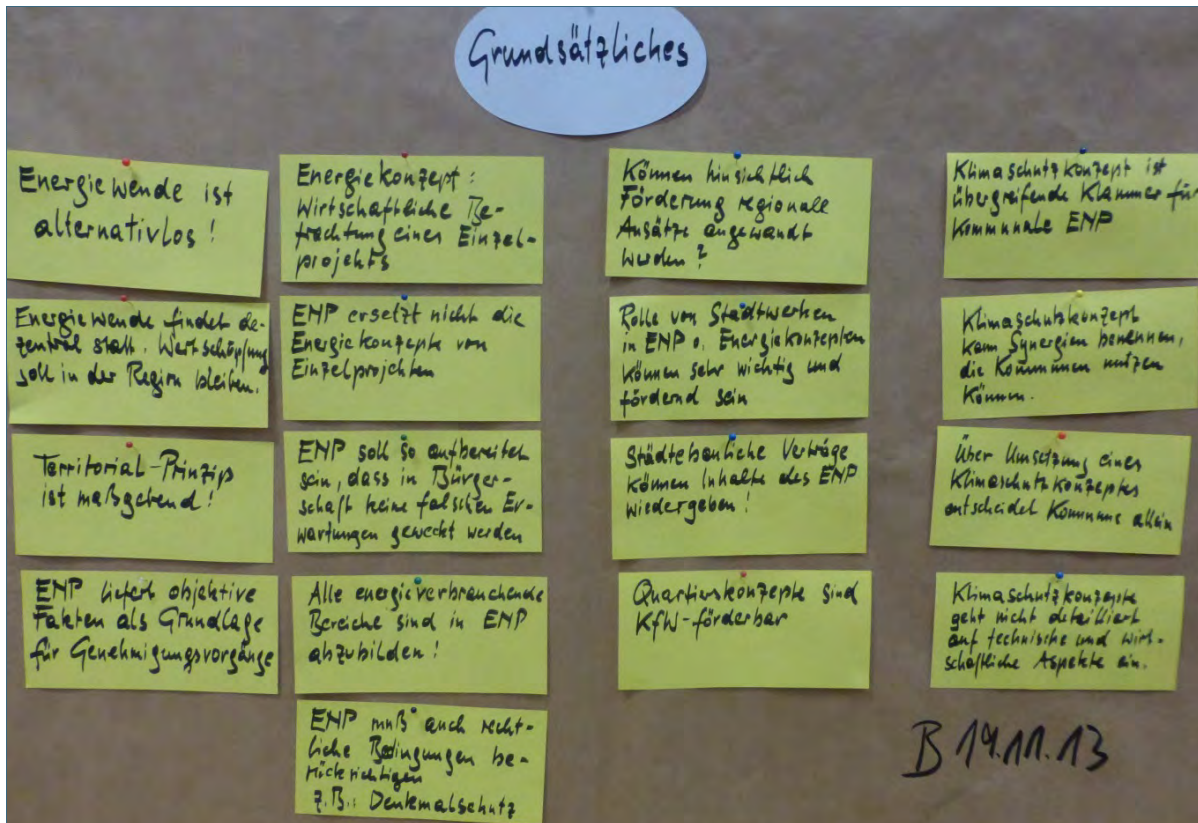 Grundsätzliches
Energiewende ist
alternativlos!
Energiewende findet de-
zentral statt. Wertschöpfung
soll in der Region bleiben.
Territorial-Prinzip
ist maßgebend!
ENP liefert objektive
Fakten als Grundlage
für Genehmigungsvorgänge
Energiekonzept:
Wirtschaftliche Be-
trachtung eines Einzel-
projekts
ENP ersetzt nicht die
Energiekonzepte von
Einzelprojekten
ENP soll so aufbereitet
sein, dass in Bürger-
schaft keine falschen Er-
wartungen geweckt werden
Alle energieverbrauchende
Bereiche sind in ENP
abzubilden!
ENP muß auch recht-
liche Bedingungen be-
rücksichtigen
z.B.: Denkmalschutz
Können hinsichtlich
Förderung regionale
Ansätze angewandt
werden?
Rolle von Stadtwerken
in ENP o. Energiekonzepten
können sehr wichtig und
fördernd sein
Städtebauliche Verträge
können Inhalte des ENP
wiedergeben!
Quartierskonzepte sind
KfW-förderbar
Klimaschutzkonzept ist
übergreifende Klammer für
Kommunale ENP
Klimaschutzkonzept
kann Synergien benennen,
die Kommunen nutzen
können.
Über Umsetzung eines
Klimaschutzkonzeptes
entscheidet Kommune allein
Klimaschutzkonzepte
geht nicht detailliert
auf technische und wirt-
schaftliche Aspekte ein.
B 19.11.13